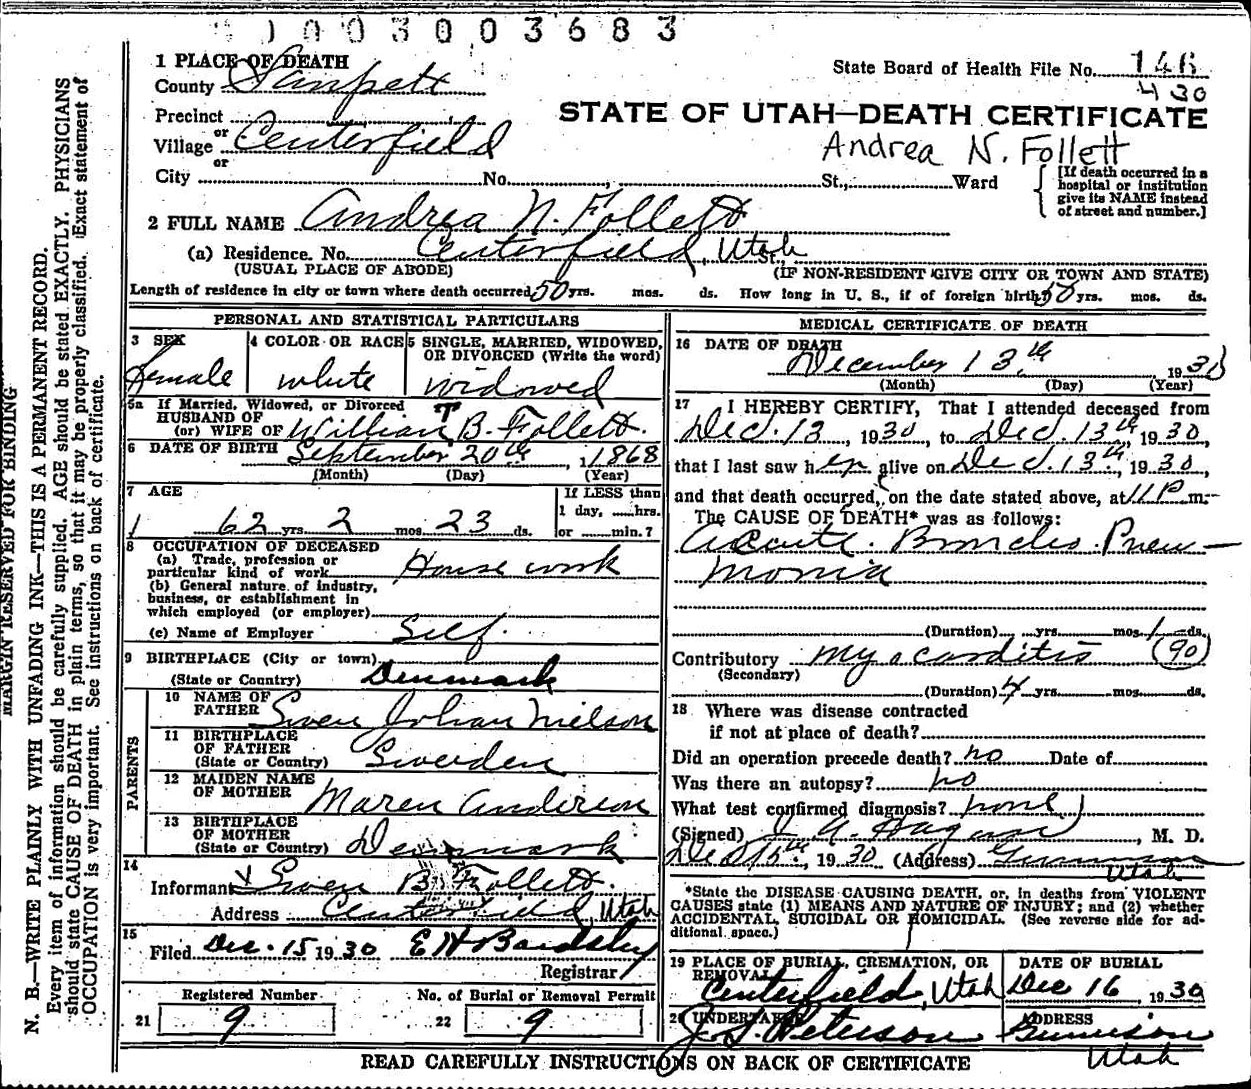 1003003683
1 PLACE OF DEATH
County Sanpete
State Board of Health File No. 146
430
Precinct
or
Village Centerfield
or
STATE OF UTAH—DEATH CERTIFICATE
Andrea N. Follett
City No. St., Ward
[If death occurred in a
hospital or institution
give its NAME instead
of street and number.]
2 FULL NAME Andrea N. Follett
(a) Residence. No. Centerfield, Utah
(USUAL PLACE OF ABODE) (IF NON-RESIDENT GIVE CITY OR TOWN AND STATE)
Length of residence in city or town where death occurred 50 yrs. mos. ds. How long in U. S., if of foreign birth? 50 yrs. mos. ds.
PERSONAL AND STATISTICAL PARTICULARS
3 SEX
female
4 COLOR OR RACE
white
5 SINGLE, MARRIED, WIDOWED,
OR DIVORCED (Write the word)
widowed
5a If Married, Widowed, or Divorced
HUSBAND OF
(or) WIFE OF William T B. Follett.
6 DATE OF BIRTH September 20th, 1868
(Month) (Day) (Year)
7 AGE
62 yrs. 2 mos. 23 ds.
If LESS than
1 day, hrs.
or min.?
8 OCCUPATION OF DECEASED
(a) Trade, profession or
particular kind of work House work
(b) General nature of industry,
business, or establishment in
which employed (or employer)
(c) Name of Employer Self.
9 BIRTHPLACE (City or town)
(State or Country) Denmark
PARENTS
10 NAME OF
FATHER Swen Johan Nielson
11 BIRTHPLACE
OF FATHER
(State or Country) Sweden
12 MAIDEN NAME
OF MOTHER Maren Anderson
13 BIRTHPLACE
OF MOTHER
(State or Country) Denmark
14
Informant Swen B. Follett.
Address Centerfield, Utah
15
Filed Dec. 15 1930 E H Bardsley
Registrar
Registered Number
21 9
No. of Burial or Removal Permit
22 9
MEDICAL CERTIFICATE OF DEATH
16 DATE OF DEATH
December 13th 1930
(Month) (Day) (Year)
17 I HEREBY CERTIFY, That I attended deceased from
Dec. 13, 1930, to Dec. 13th, 1930,
that I last saw her alive on Dec. 13th, 1930,
and that death occurred, on the date stated above, at 11 P m.
The CAUSE OF DEATH* was as follows:
Acoute. Broncho. Pneu-
monia
(Duration) yrs. mos. 1 ds.
Contributory Myocarditis (90)
(Secondary)
(Duration) 4 yrs. mos. ds.
18 Where was disease contracted
if not at place of death?
Did an operation precede death? no Date of
Was there an autopsy? no
What test confirmed diagnosis? none
(Signed) J A Hagan, M. D.
Dec 15th, 1930 (Address) Gunnison
Utah
*State the DISEASE CAUSING DEATH, or, in deaths from VIOLENT
CAUSES state (1) MEANS AND NATURE OF INJURY; and (2) whether
ACCIDENTAL, SUICIDAL OR HOMICIDAL. (See reverse side for ad-
ditional space.)
19 PLACE OF BURIAL, CREMATION, OR
REMOVAL
Centerfield, Utah
DATE OF BURIAL
Dec 16, 1930
20 UNDERTAKER
J. S. Peterson
ADDRESS
Gunnison
Utah
READ CAREFULLY INSTRUCTIONS ON BACK OF CERTIFICATE
MARGIN RESERVED FOR BINDING
N. B.—WRITE PLAINLY WITH UNFADING INK—THIS IS A PERMANENT RECORD.
Every item of information should be carefully supplied. AGE should be stated EXACTLY. PHYSICIANS
should state CAUSE OF DEATH in plain terms, so that it may be properly classified. Exact statement of
OCCUPATION is very important. See instructions on back of certificate.